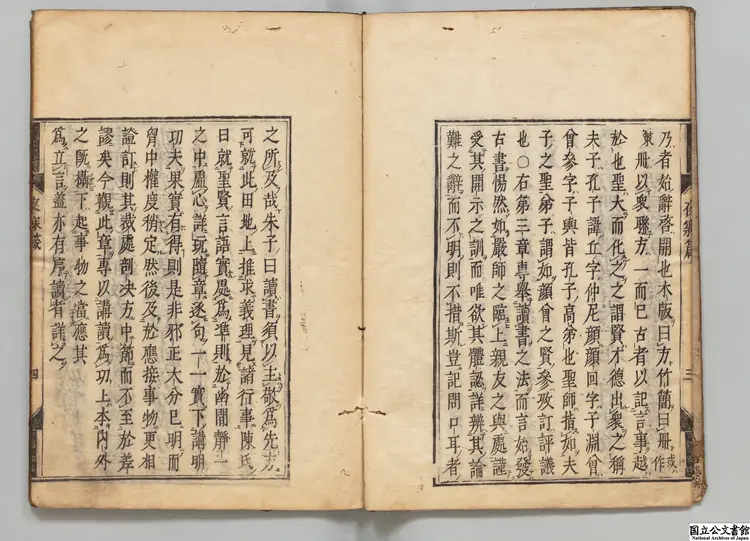 夜寐箴
三
乃者始辭啓開也木版曰方竹簡曰冊或作
策冊以衆聯方一而已古者以記言事越
於也聖大而化之之謂賢才德出衆之稱
夫子孔子諱丘字仲尼顔顔回字子淵曾
曾參字子輿皆孔子高弟也聖師指如夫
子之聖弟子謂如顔曾之賢參攷訂評議
也○右第三章專舉讀書之法而言始發
古書惕然如嚴師之臨上親友之與處謹
受其開示之訓而唯欲其體認詳辨其論
難之辭而不明則不措斯豈記問口耳者
之所及哉朱子曰讀書須以主敬爲先方
可就此田地上推求義理見諸行事陳氏
曰就聖賢言語實處爲準則於幽閒靜一
之中虛心詳玩隨章逐句一一實下講明
功夫果實有得則是非邪正大分已明而
胷中權度稍定然後及於應接事物更相
證訂則其裁處剖决方中節而不至於差
謬矣今觀此章專以講讀爲功上本内外
之既下起事物之當應其
爲立言蓋亦有序讀者詳之
夜寐箴
四
国立公文書館
National Archives of Japan